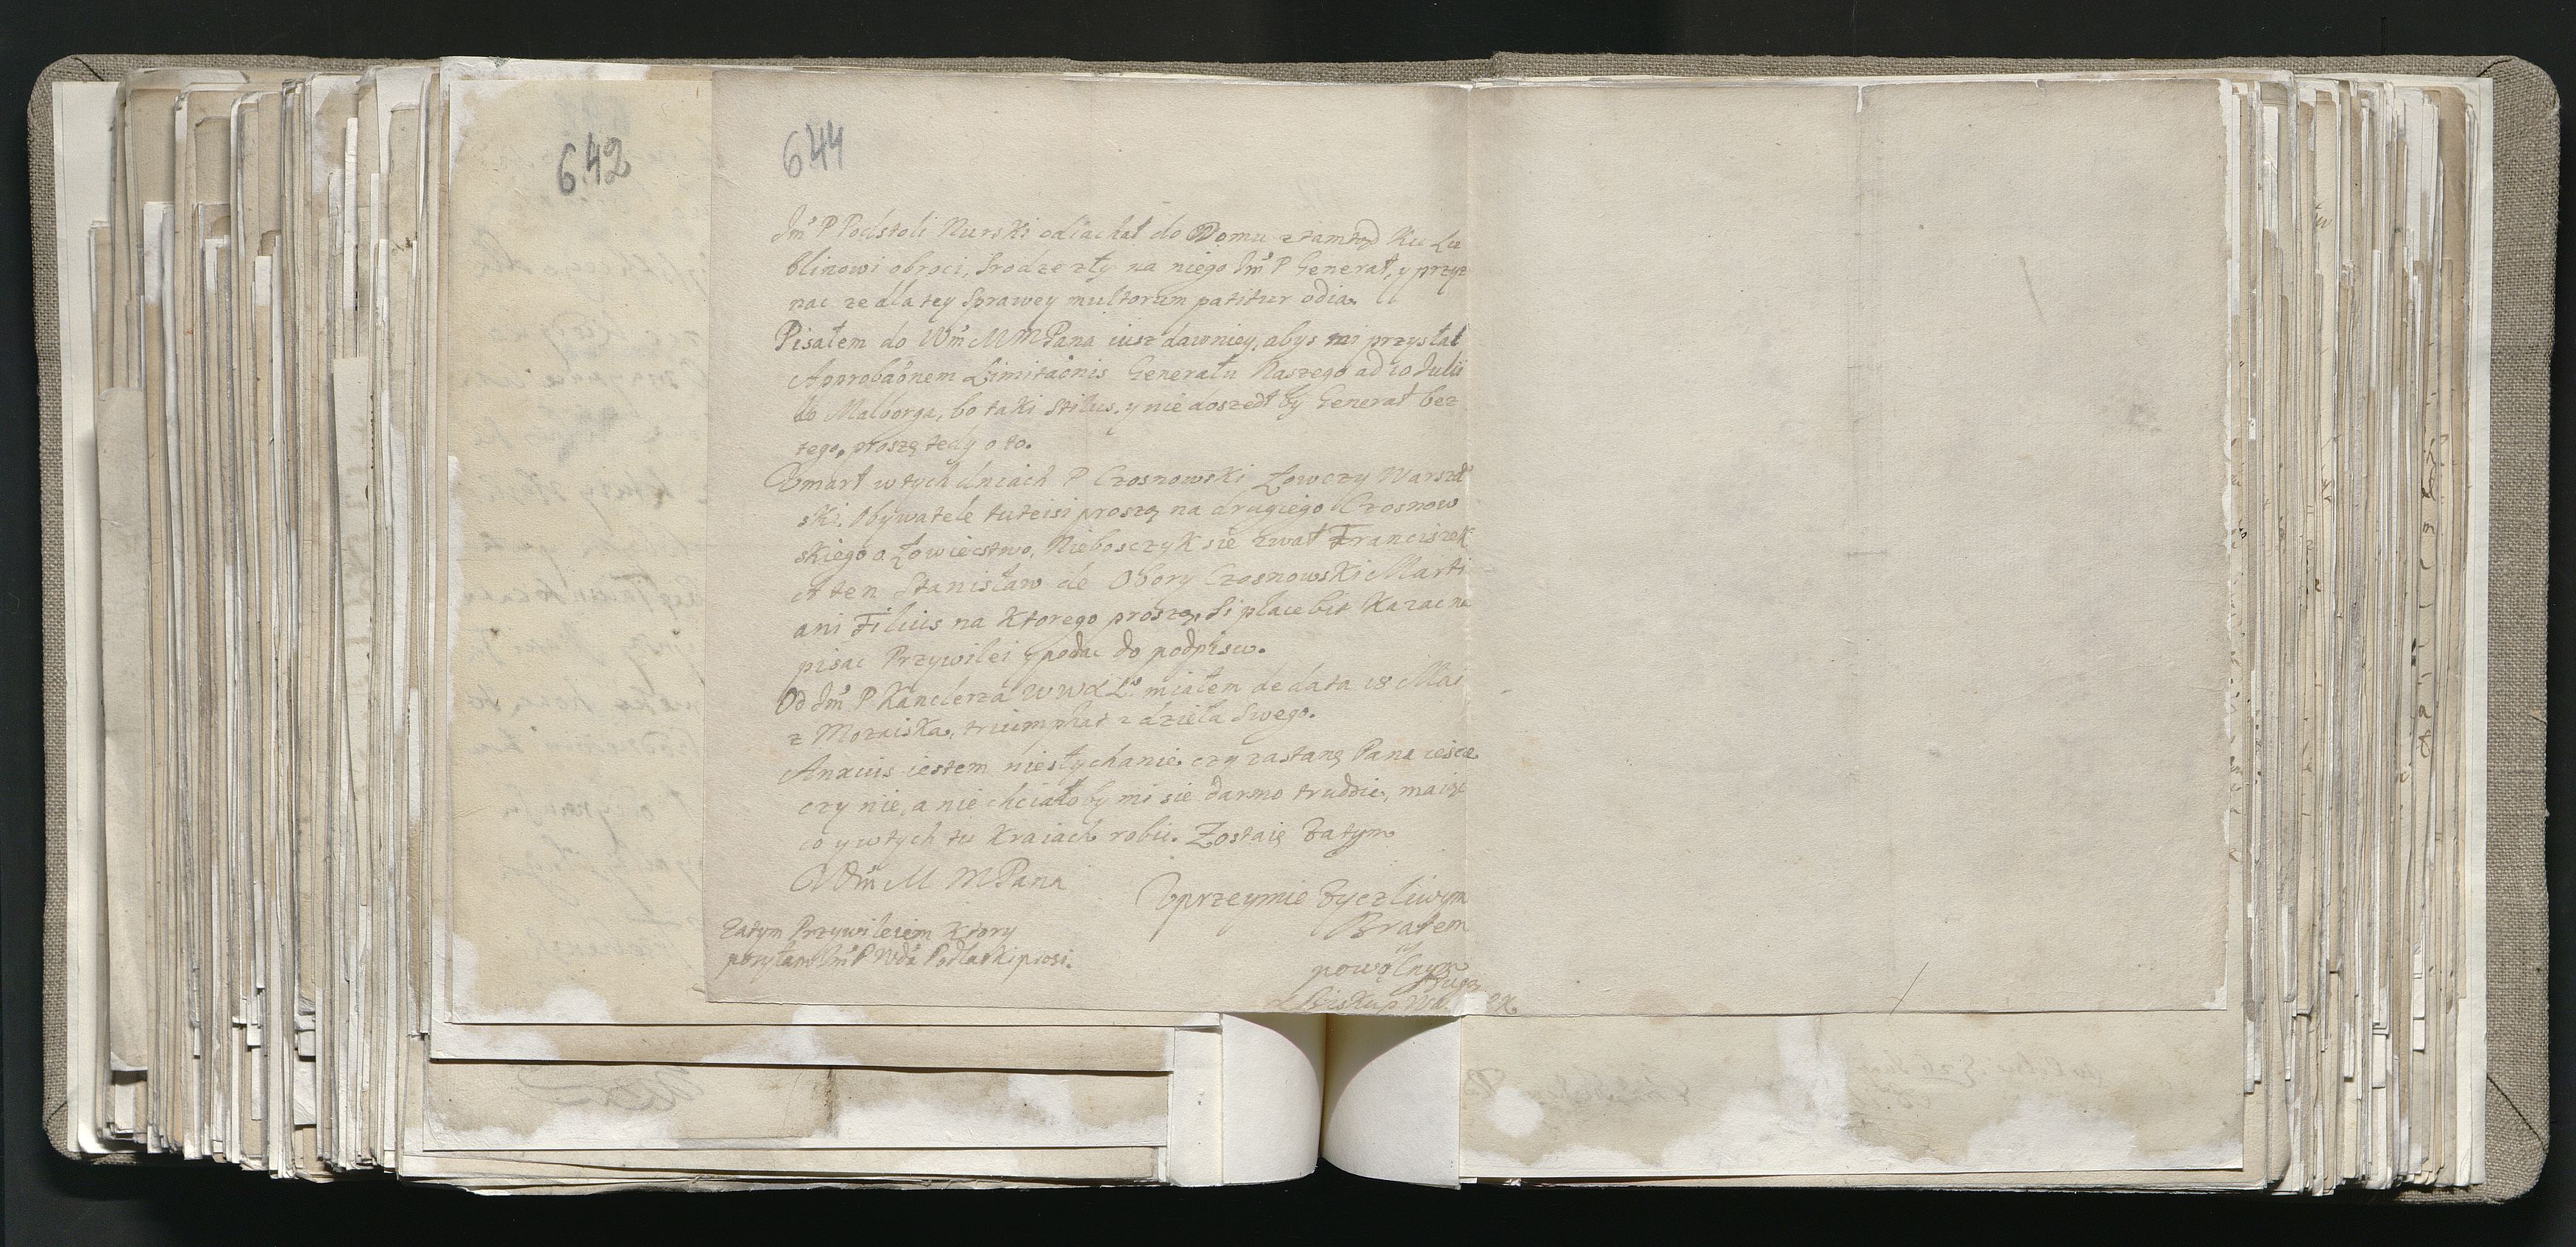 642
644
Jmć P Podstoli Nurski odiachał do Domu ztamtąd Ku Lu
blinowi obroci, srodze zły na niego Jmć P Generał, y przyz
nac ze dla tey sprawey multorum patitur odia.
Pisałem do Wmć M M Pana iusz dawniey, abys mi przysłał
Approbaōnem Limitaōnis Generału Naszego ad 10 Julii
do Malborga, bo taki stilus, y nie doszedł by Generał bez
tego, proszę tedy o to.
Vmarł w tych dniach P Czosnowski Łowczy Warsza
ski. Obywatele tuteisi proszą na drugiego Czosnow
skiego o Łowiectwo, Niebosczyk sie zwał Franciszek
A ten Stanisław de Obory Czosnowski Marti
ani Filius na Ktorego proszę, si placebit Kazac na
pisac Przywilei y podac do podpisu.
Od Jmć P Kanclerza W W X L miałem de data 18 Mai
z Mozaiska, triumphat z dzieła swego.
Anxius iestem niesłychanie czy zastanę Pana iescze
czy nie, a nie chciałoby mi sie darmo trudzic, maiąc
co y w tych tu Kraiach robic. Zostaię Zatym
Wmć M M Pana
Vprzeymie Zyczliwym
Bratem
powolnym
sługą
Biskup
Zatym Przywileiem Ktory
posyłam Jmć P Wda Podlaski prosi.